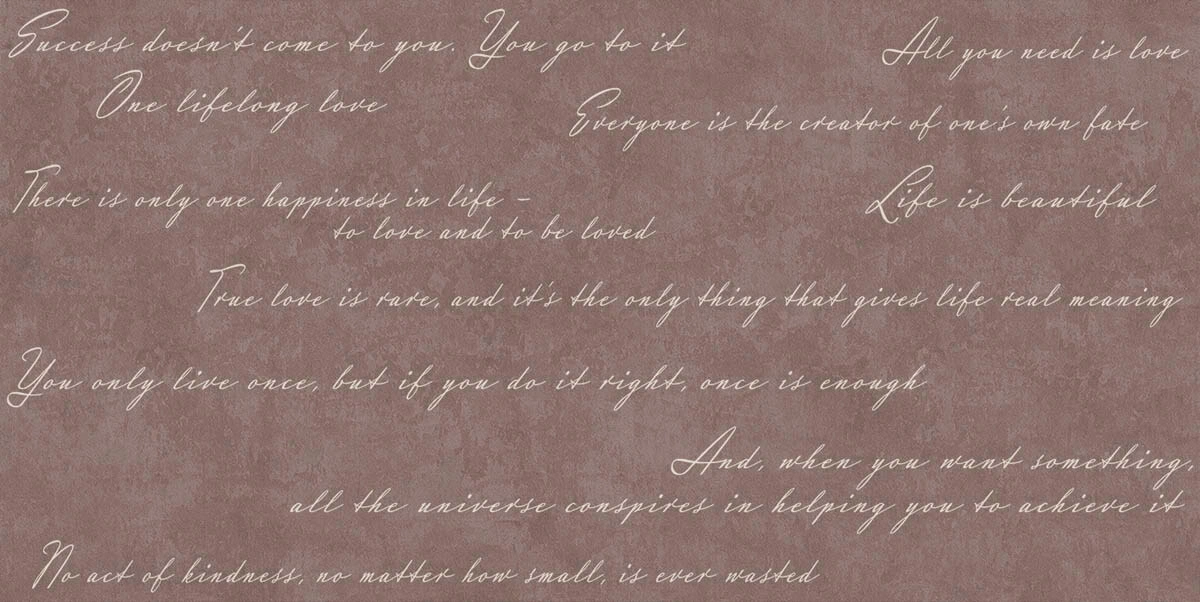 Success doesn't come to you. You go to it
All you need is love
One lifelong love
Everyone is the creator of one's own fate
There is only one happiness in life –
to love and to be loved
Life is beautiful
True love is rare, and it's the only thing that gives life real meaning
You only live once, but if you do it right, once is enough
And, when you want something,
all the universe conspires in helping you to achieve it
No act of kindness, no matter how small, is ever wasted